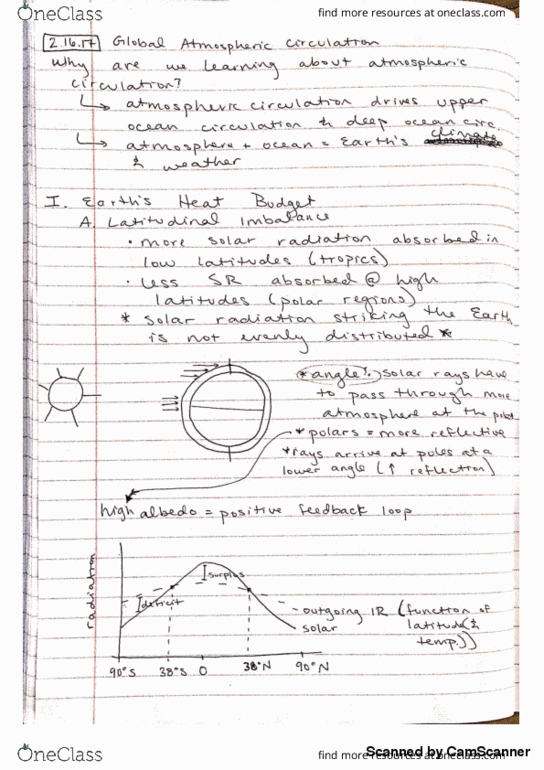 OneClass
find more resources at oneclass.com
2.16.17 Global Atmospheric Circulation
Why are we learning about atmospheric
circulation?
↳ atmospheric circulation drives upper
ocean circulation & deep ocean circ
↳ atmosphere + ocean = Earth's climate
& weather
I. Earth's Heat Budget
A. Latitudinal Imbalance
• more solar radiation absorbed in
low latitudes (tropics)
• Less SR absorbed @ high
latitudes (polar regions)
* solar radiation striking the Earth
is not evenly distributed *
*angle: solar rays have
to pass through more
atmosphere at the poles
* polars = more reflective
*rays arrive at poles at a
lower angle (↑ reflection)
high albedo = positive feedback loop
radiation
surplus
deficit
outgoing IR (function of
latitude &
temp.))
solar
90°S 38°S 0 38°N 90°N
OneClass
find more resources at oneclass.com
Scanned by CamScanner